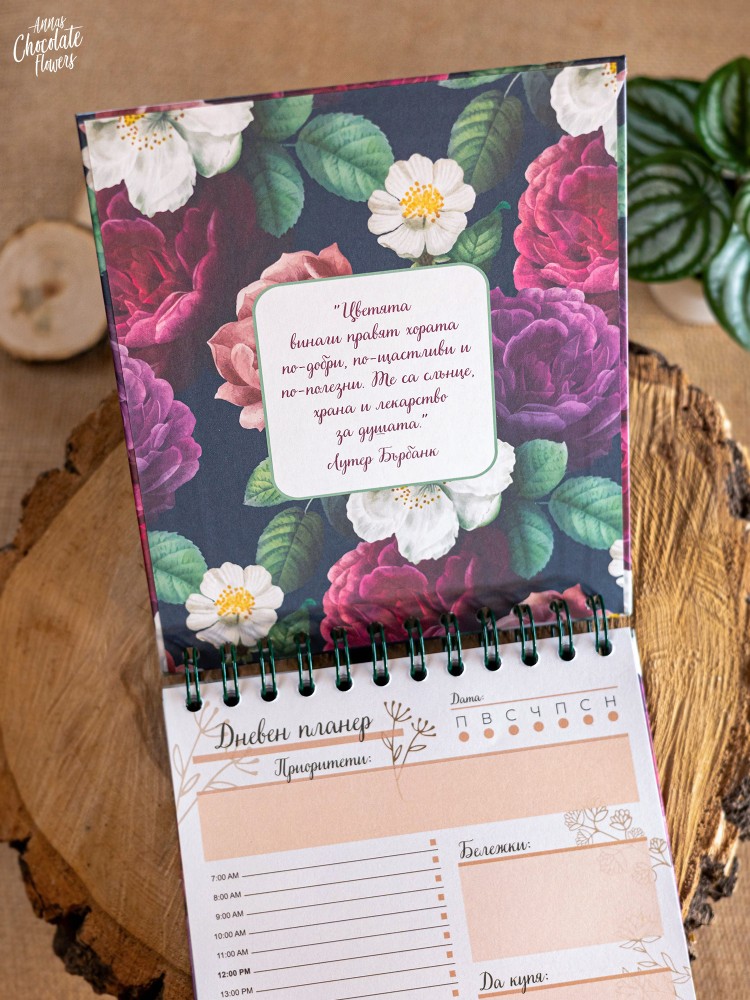 Annas
Chocolate
Flowers
"Цветята
винаги правят хората
по-добри, по-щастливи и
по-полезни. Те са слънце,
храна и лекарство
за душата."
Лутер Бърбанк
Дневен планер
Дата:
П В С Ч П С Н
Приоритети:
7:00 AM
8:00 AM
9:00 AM
10:00 AM
11:00 AM
12:00 PM
13:00 PM
Бележки:
Да купя: